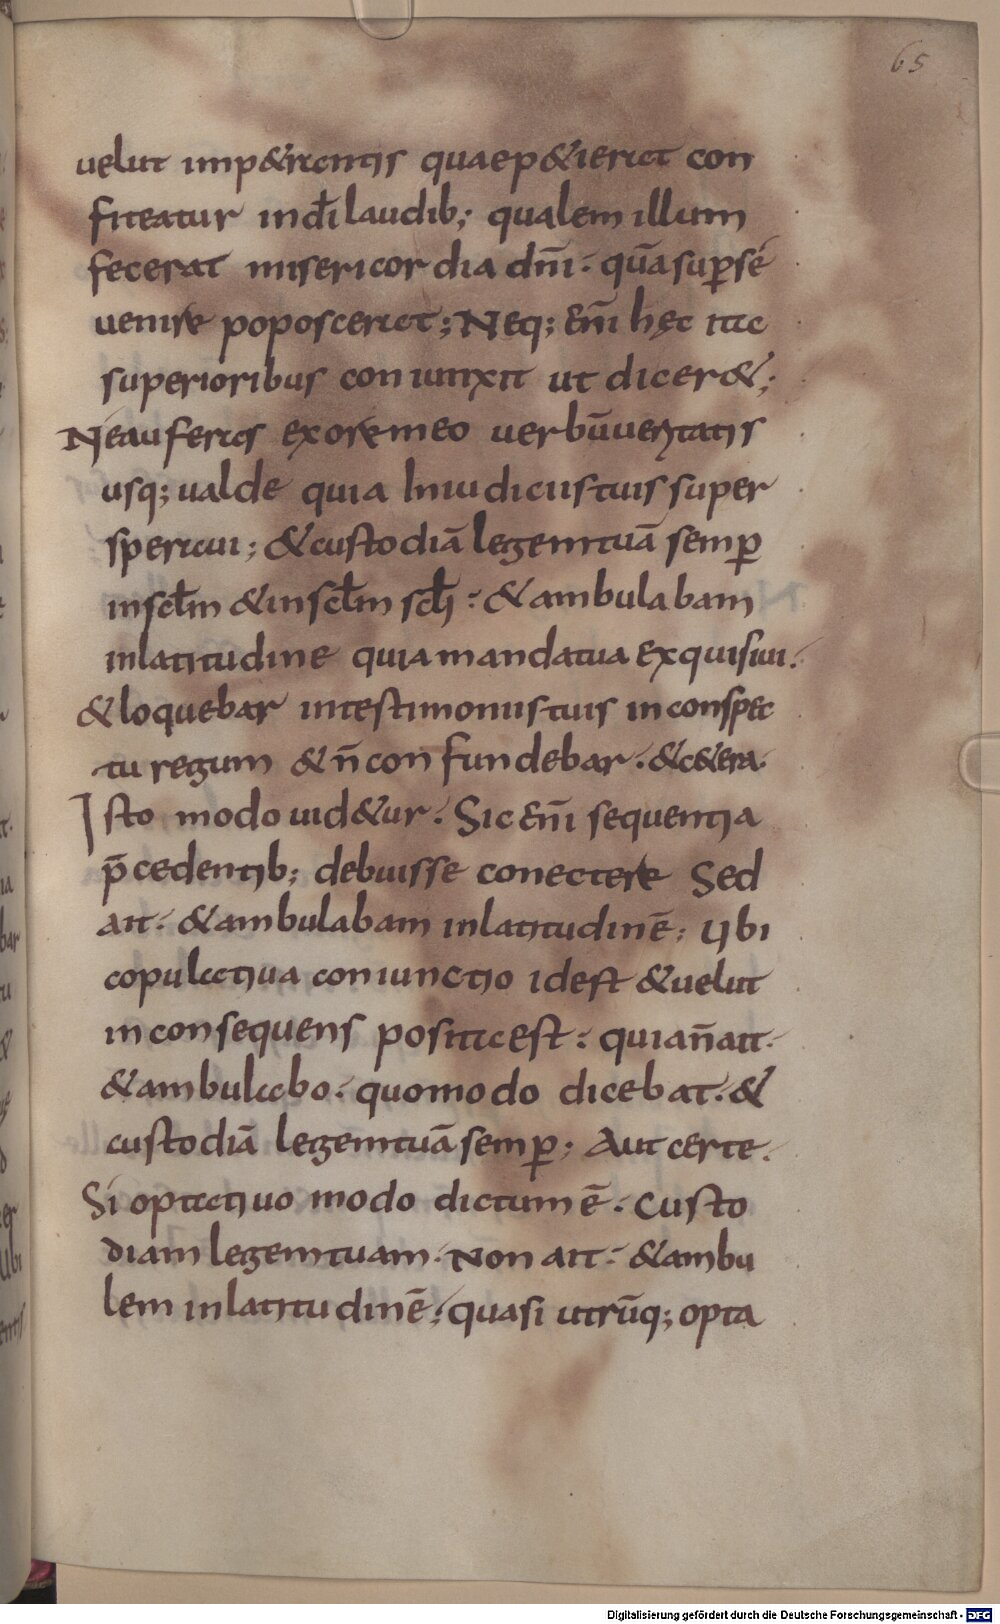 65
uelut imp&rantis quaep&ierat con
fiteatur indi̅ laudib; qualem illum
fecerat misericordia dn̅i. qua̅ sup̅ se
uenire poposcerat; Neq; eni̅ hęc ita
superioribus coniunxit ut dicer&;
Neauferas exoremeo uerbu̅ueritatis
usq; ualde quia Iniudiciistuis super
speraui; &custodia̅ legemtua̅ semp̅
insc̅lm &insc̅lm sc̅li. &ambulabam
inlatitudine quiamandatatua exquisiui.
&loquebar intestimoniistuis inconspec
tu regum &n̅ confundebar. &c&era.
Isto modo uid&ur. Sic eni̅ sequentia
p̅cedentib; debuisse conectere Sed
ait. &ambulabam inlatitudine̅; Ubi
copulatiua coniunctio idest &uelut
inconsequens positaest. quian̅ait.
&ambulabo. quomodo dicebat. &
custodia̅ legemtua̅ semp̅; Aut certe.
Si optatiuo modo dictum e̅. Custo
diam legemtuam. Non ait. &ambu
lem inlatitudine̅. quasi utru̅q; opta
Digitalisierung gefördert durch die Deutsche Forschungsgemeinschaft - DFG